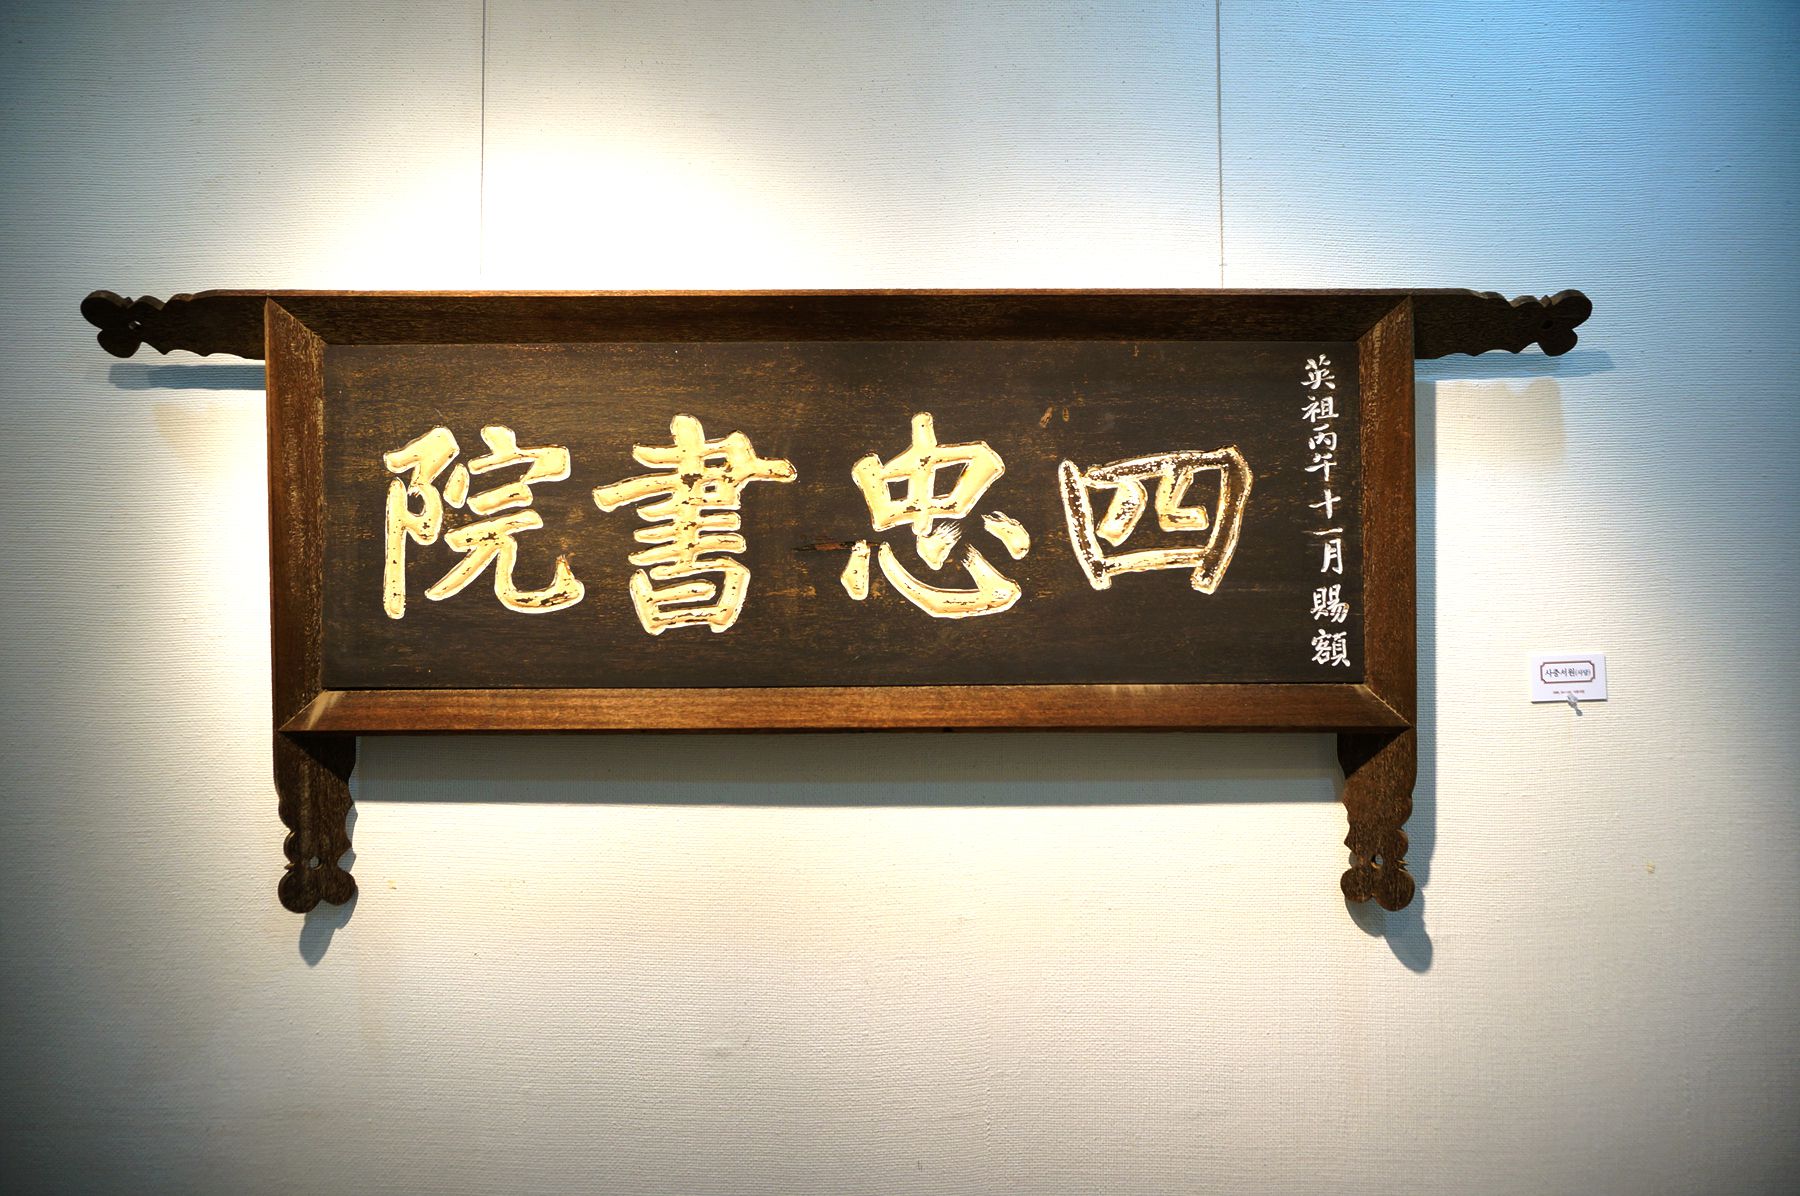 英祖丙午十一月賜額
四忠書院
사충서원(사당)